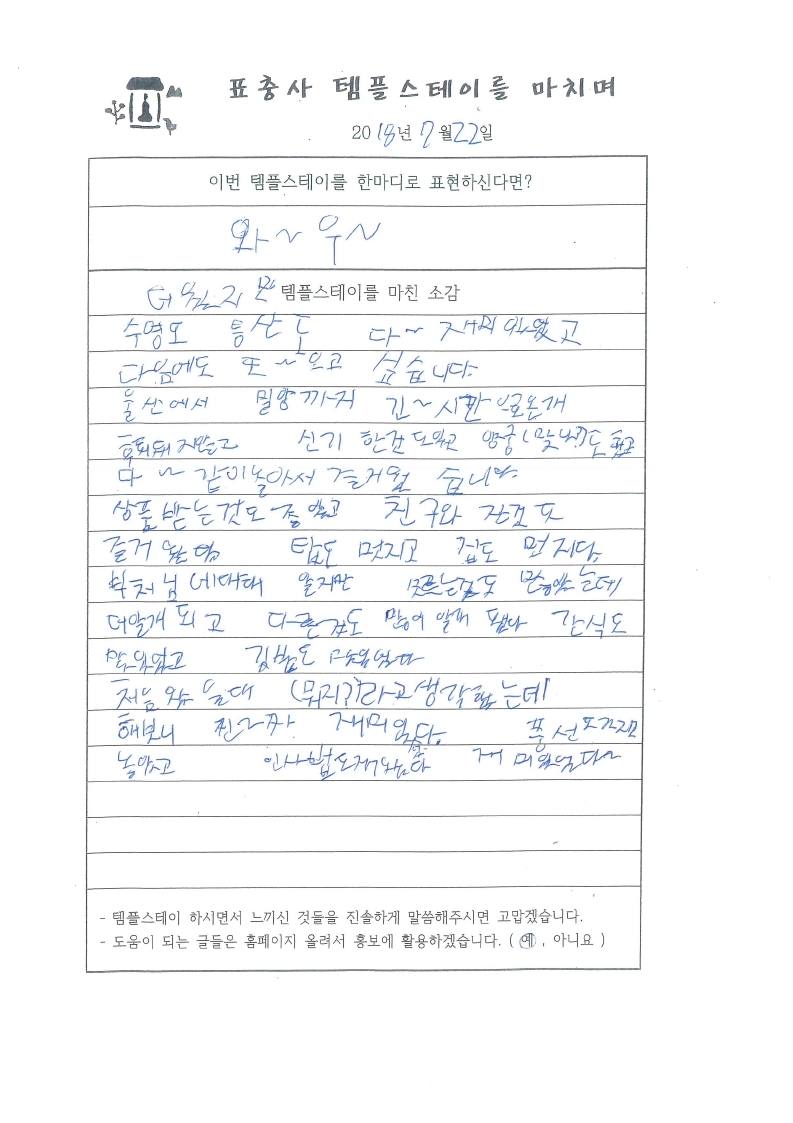 표충사 템플스테이를 마치며
2018년 7월 22일
이번 템플스테이를 한마디로 표현하신다면?
와~ 우~
템플스테이를 마친 소감
수영도 등산도 다~ 재미있었고
다음에도 또~ 오고 싶습니다.
울산에서 밀양까지 긴~ 시간으로온게
신기 한건도
다~ 같이놀아서 즐거웠 습니다.
상품 받는것도 좋았고 친구와 잔것도
즐거 웠 탑도 멋지고 컵도 멋지다
부처님 에대해 알지만 모르는것도 많았는데
더알게 되고 다른것도 많이 알게 됐다 간식도
맛있었고 김밥도 맛있었다
처음 왔 을때 (뭐지?)라고생각했는데
해보니 찐~짜 재미있었다. 풍선도가지고
놀았고 재미있었다~
- 템플스테이 하시면서 느끼신 것들을 진솔하게 말씀해주시면 고맙겠습니다.
- 도움이 되는 글들은 홈페이지 올려서 홍보에 활용하겠습니다. ( 예 , 아니요 )